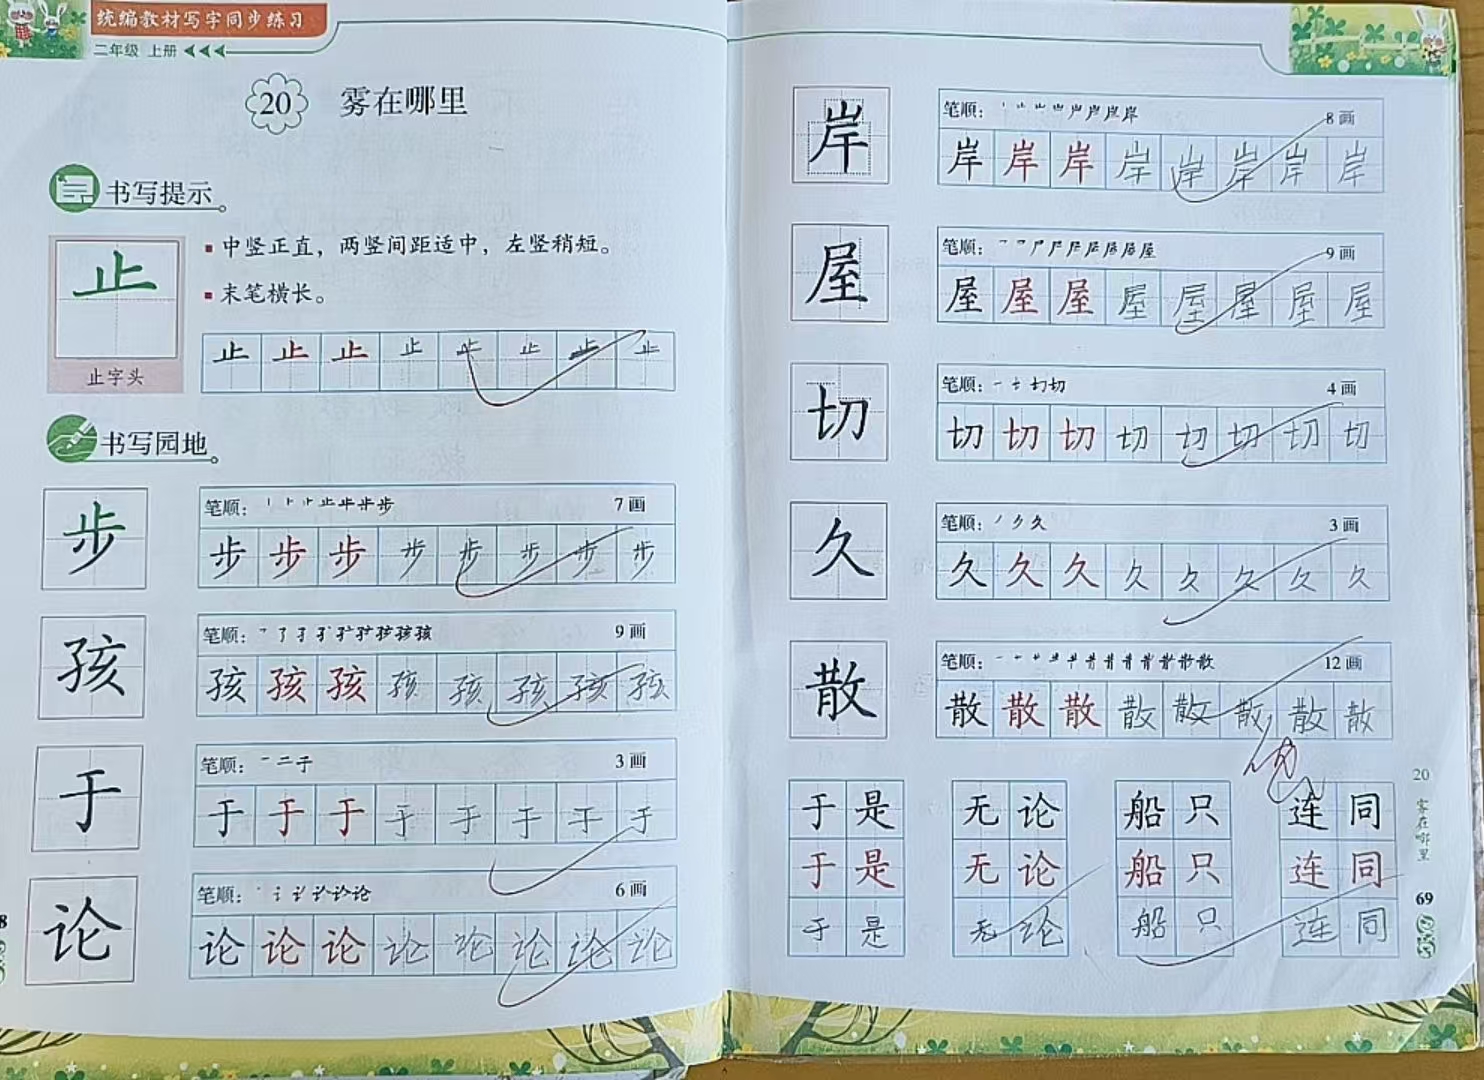 统编教材写字同步练习
二年级 上册
20 雾在哪里
书写提示
止
止字头
中竖正直，两竖间距适中，左竖稍短。
末笔横长。
止 止 止 止 止 止 止 止
书写园地
步
笔顺： 7画
步 步 步 步 步 步 步 步
孩
笔顺： 9画
孩 孩 孩 孩 孩 孩 孩 孩
于
笔顺： 3画
于 于 于 于 于 于 于 于
论
笔顺： 6画
论 论 论 论 论 论 论 论
岸
笔顺： 8画
岸 岸 岸 岸 岸 岸 岸 岸
屋
笔顺： 9画
屋 屋 屋 屋 屋 屋 屋 屋
切
笔顺： 4画
切 切 切 切 切 切 切 切
久
笔顺： 3画
久 久 久 久 久 久 久 久
散
笔顺： 12画
散 散 散 散 散 散 散 散
于是 无论 船只 连同
于是 无论 船只 连同
于是 无论 船只 连同
20 雾在哪里
69